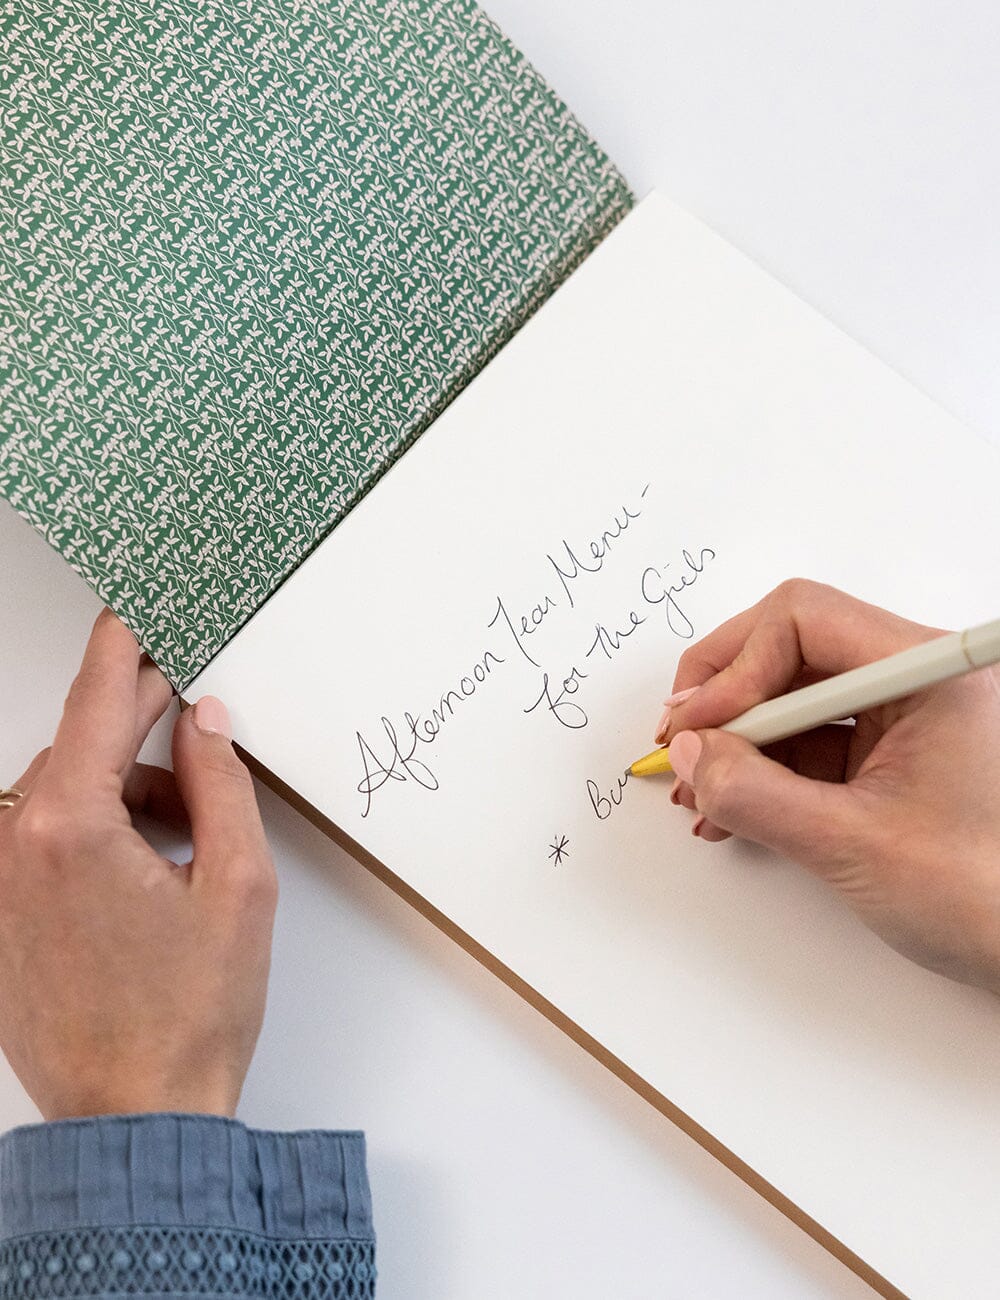 Afternoon Tea Menu -
for the Girls
* Ba